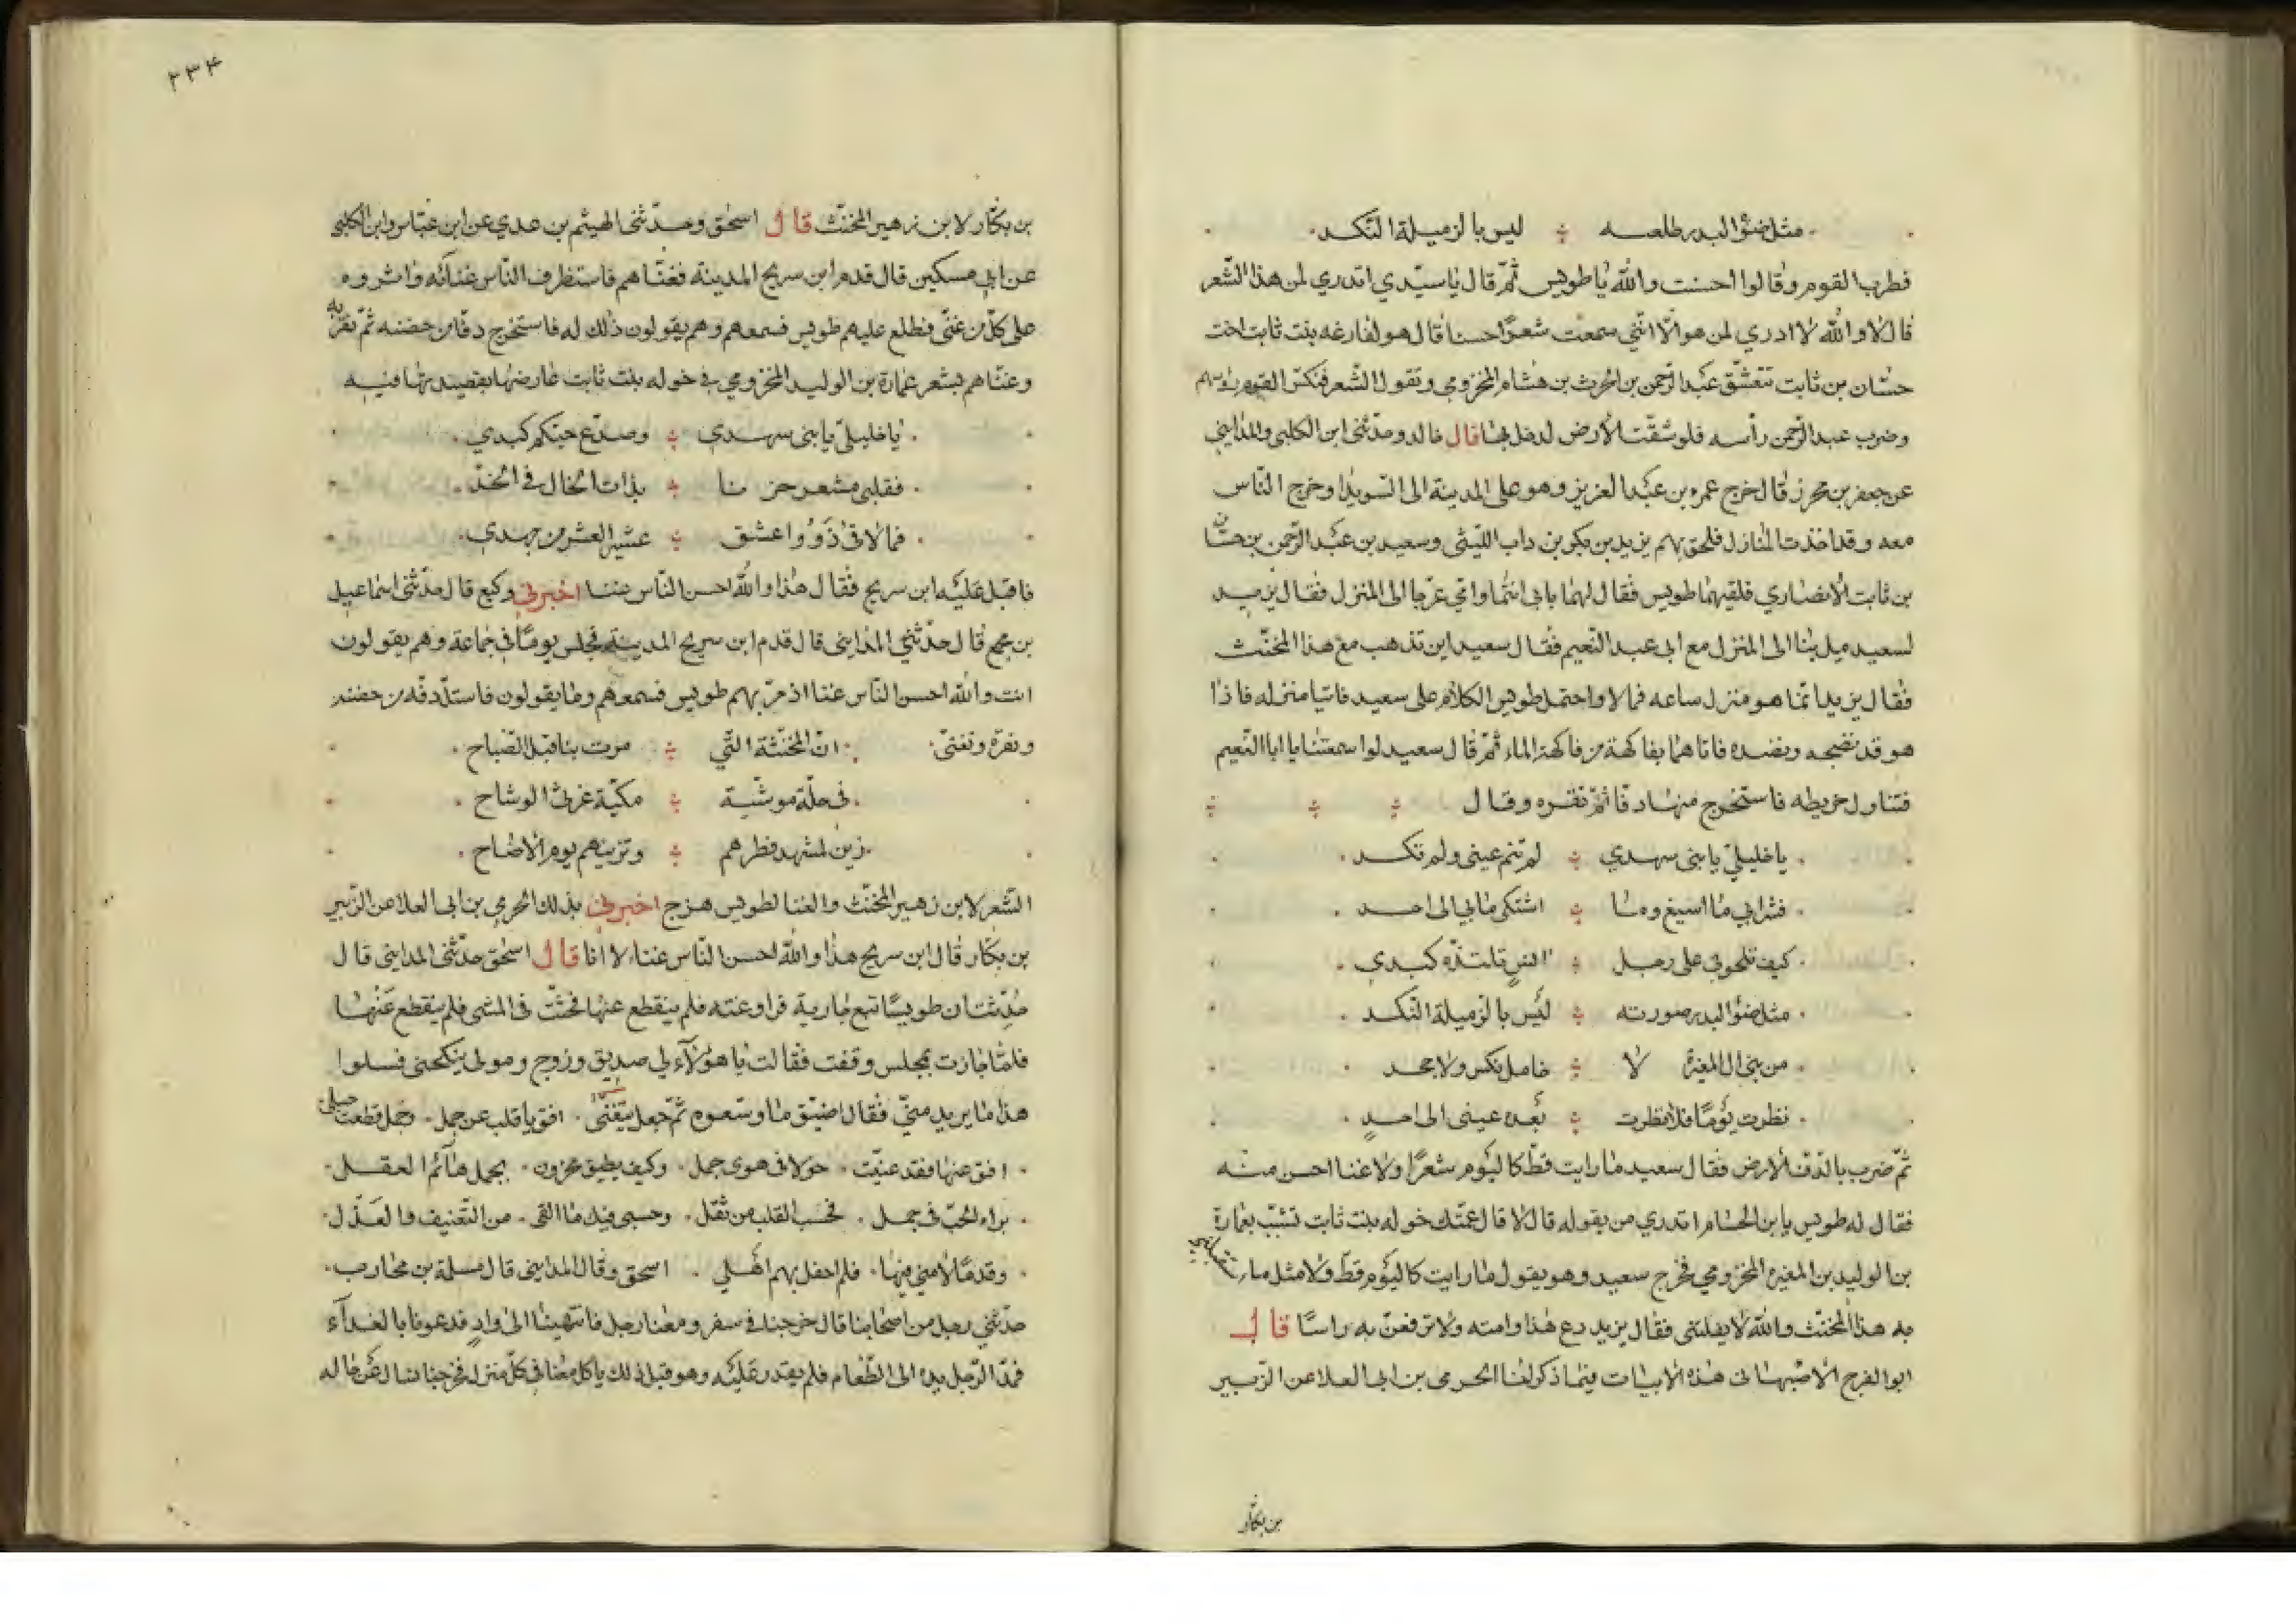 مثل ضوء البدر طلعته ليس بالزميلة النكد
فطرب القوم وقالوا احسنت والله يا طويس ثمّ قال يا سيّدي اتدري لمن هذا الشعر
قال لا والله لا ادري لمن هو الّا انّني سمعت شعرًا حسنا قال هو لفارغه بنت ثابت اخت
حسّان بن ثابت تتعشّق عبد الرّحمن بن الحرث بن هشام المخزومي وتقول الشّعر فنكس القوم رؤسهم
وضرب عبد الرّحمن رأسه فلو شقّت الارض لدخل بها قال خالد وحدّثني ابن الكلبي والمدايني
عن جعفر بن محرز قال خرج عمر بن عبد العزيز وهو على المدينة الى السّويدا وخرج النّاس
معه وقد اخذت المنازل فلحق بهم يزيد بن بكر بن داب اللّيثي وسعيد بن عبد الرّحمن بن حسّان
بن ثابت الانصاري فلقيهما طويس فقال لهما بابي انتما وامّي عرّجا الى المنزل فقال يزيد
لسعيد ميل بنا الى المنزل مع ابي عبد النّعيم فقال سعيد اين تذهب مع هذا المخنّث
فقال يزيد انّما هو منزل ساعه فمالا واحتمل طويس الكلام على سعيد فاتيا منزله فاذا
هو قد نضجه ونضده فاتاهما بفاكهة من فاكهة الماء ثمّ قال سعيد لو اسمعتنا يا ابا النّعيم
فتناول خريطه فاستخرج منها دفّا ثمّ نقره وقال
يا خليليّ يا بني سهدي لم تنم عيني ولم تكد
فشرابي ما اسيغ وما اشتكي ما بي الى احد
كيف تلحوني على رجل انس تلتذّه كبدي
مثل ضوء البدر صورته ليس بالزميلة النّكد
من بني ال المغيرة لا خامل نكس ولا جحد
نظرت يومًا فلا نظرت بعده عيني الى احدٍ
ثمّ ضرب بالدّف الارض فقال سعيد ما رايت قطّ كاليوم شعرًا ولا غنا احسن منه
فقال له طويس يا ابن الحسام اتدري من يقوله قال لا قال عمّتك خوله بنت ثابت تشبّب بعمارة
بن الوليد بن المغيره المخزومي فخرج سعيد وهو يقول ما رايت كاليوم قطّ ولا مثل ما
به هذا المخنّث والله لا يفلتني فقال يزيد دع هذا وامته ولا ترفعنّ به راسًا قال
ابو الفرج الاصبهاني هذه الابيات فيما ذكر لنا الحرمي بن ابي العلا عن الزّبير
بن بكّار
٢٣٤
بن بكّار لابن زهير المخنّث قال اسحق وحدّثني الهيثم بن عدي عن ابن عبّاس وابن الكلبي
عن ابي مسكين قال قدم ابن سريج المدينة فغنّاهم فاستظرف النّاس غنائه واثروه
على كلّ من غنّى فطلع عليهم طويس فسمعهم وهم يقولون ذلك له فاستخرج دفّا من حضنه ثمّ نقر به
وغنّاهم بشعر عمارة بن الوليد المخزومي في خوله بنت ثابت عارضها بقصيدتها فيه
يا خليليّ يا بني سهدي وصدّع حبّكم كبدي
فقلبي مشعر حزنا بذات الخال في الخدّ
فما لاقى ذوو اعشق عشير العشر من جهدي
فاقبل عليه ابن سريج فقال هذا والله احسن النّاس غنا اخبرني وكيع قال حدّثني اسماعيل
بن مجمع قال حدّثني المدايني قال قدم ابن سريج المدينة فجلس يومًا في جماعة وهم يقولون
انت والله احسن النّاس غنا اذ مرّ بهم طويس فسمعهم وما يقولون فاستلّ دفّه من حضنه
ونقره وتغنّى انّ المخنّثة الّتي مرت بنا قبل الصّباح
في حلّة موشّية مكيّة غرثى الوشاح
زين لمشهد فطرهم وتزينهم يوم الاضاح
الشّعر لابن زهير المخنّث والغنا لطويس هزج اخبرني بذلك الحرمي بن ابي العلا عن الزّبير
بن بكّار قال ابن سريج هذا والله احسن النّاس غناء لا انا قال اسحق حدّثني المدايني قال
حُدّثت ان طويسًا تبع جارية فراوغته فلم ينقطع عنها فحثّت في المشي فلم ينقطع عنها
فلمّا جازت بمجلس وقفت فقالت يا هؤلآء لي صديق وزوج ومولى ينكحني فسلوا
هذا ما يريد منّي فقال اضيّق ما وسّعوه ثمّ جعل يتغنّى افق يا قلب عن جمل وجمل قطعت حبلي
افق عنها فقد عنيت حولا في هوى جمل وكيف يطيق محزون بجمل هآئم العقل
براه الحبّ في جمل فحسب القلب من ثقل وحسبي فيك ما القى من التّفنيف والعذل
وقدمًا لامني فيها فلم احفل بهم اهلي اسحق وقال المدايني قال مسلمة بن محارب
حدّثني رجل من اصحابنا قال خرجنا في سفر ومعنا رجل فانتهينا الى وادٍ فدعونا بالغدآء
فمدّ الرّجل يده الى الطّعام فلم يقدر عليه وهو قبل ذلك ياكل معنا في كلّ منزل فخرجنا نسال عن حاله